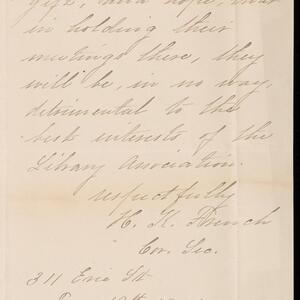 gift, and hope, that
in holding their
meetings there, they
will be, in no way,
detrimental to the
best interests of the
Library Association.
respectfully
H. K. French
Cor. Sec.
311 Erie St